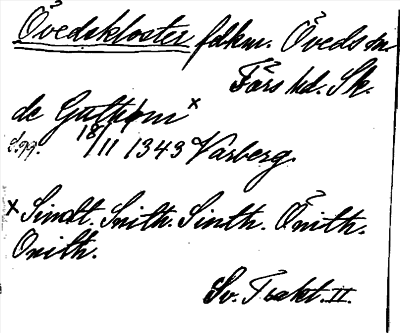 Övedskloster fdkm. Öveds sn
Färs hd. Sk.
de Guthem x
18/11 1343 Varberg.
x Sindt. Snith. Sinth. Önith.
Onith.
Sv. Trakt. II.